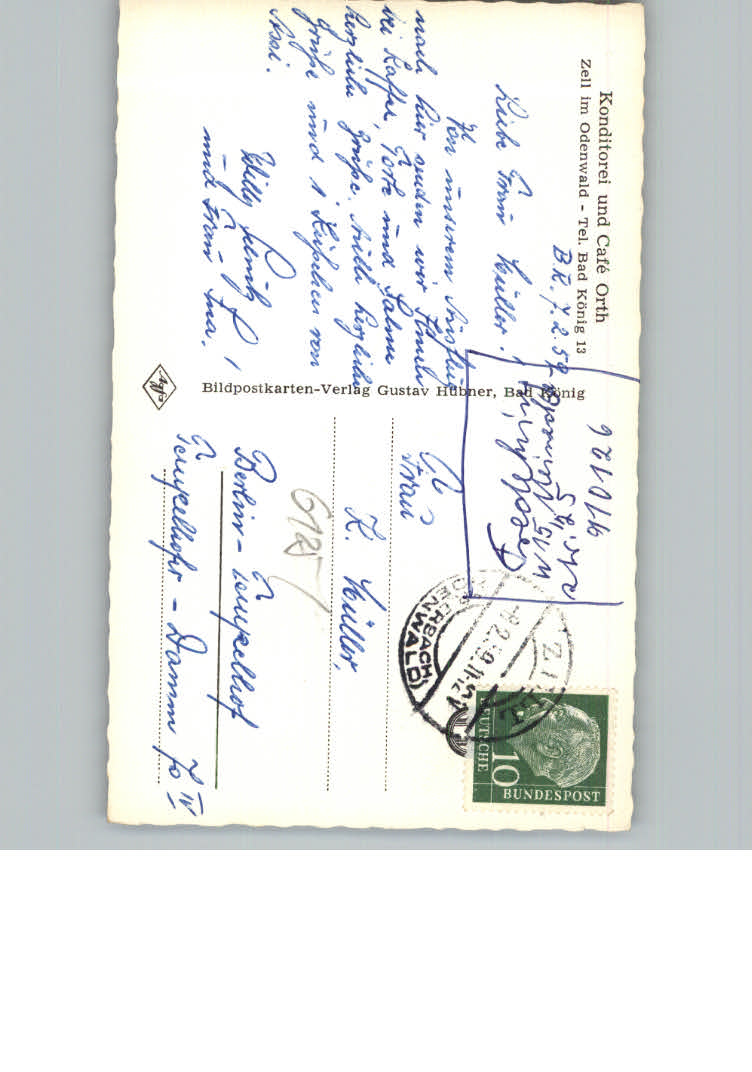 Konditorei und Café Orth
Zell im Odenwald - Tel. Bad König 13
B.K. 7.2.59
Liebe Frau Müller!
Von unserem Ausflug
nach hier senden wir Ihnen
bei Kaffee, Torte und Sahne
herzliche Grüße. Auch herzliche
Grüße und 1 Küßchen von
Assi.
Willy
und Frau Ina.
Bildpostkarten-Verlag Gustav Hübner, Bad König
Agfa
An
Frau
K. Müller,
Berlin-Tempelhof
Tempelhofer-Damm 70 IV
6125
ERBACH
(ODENWALD)
-8.2.59.11-12
DEUTSCHE
BUNDESPOST
10